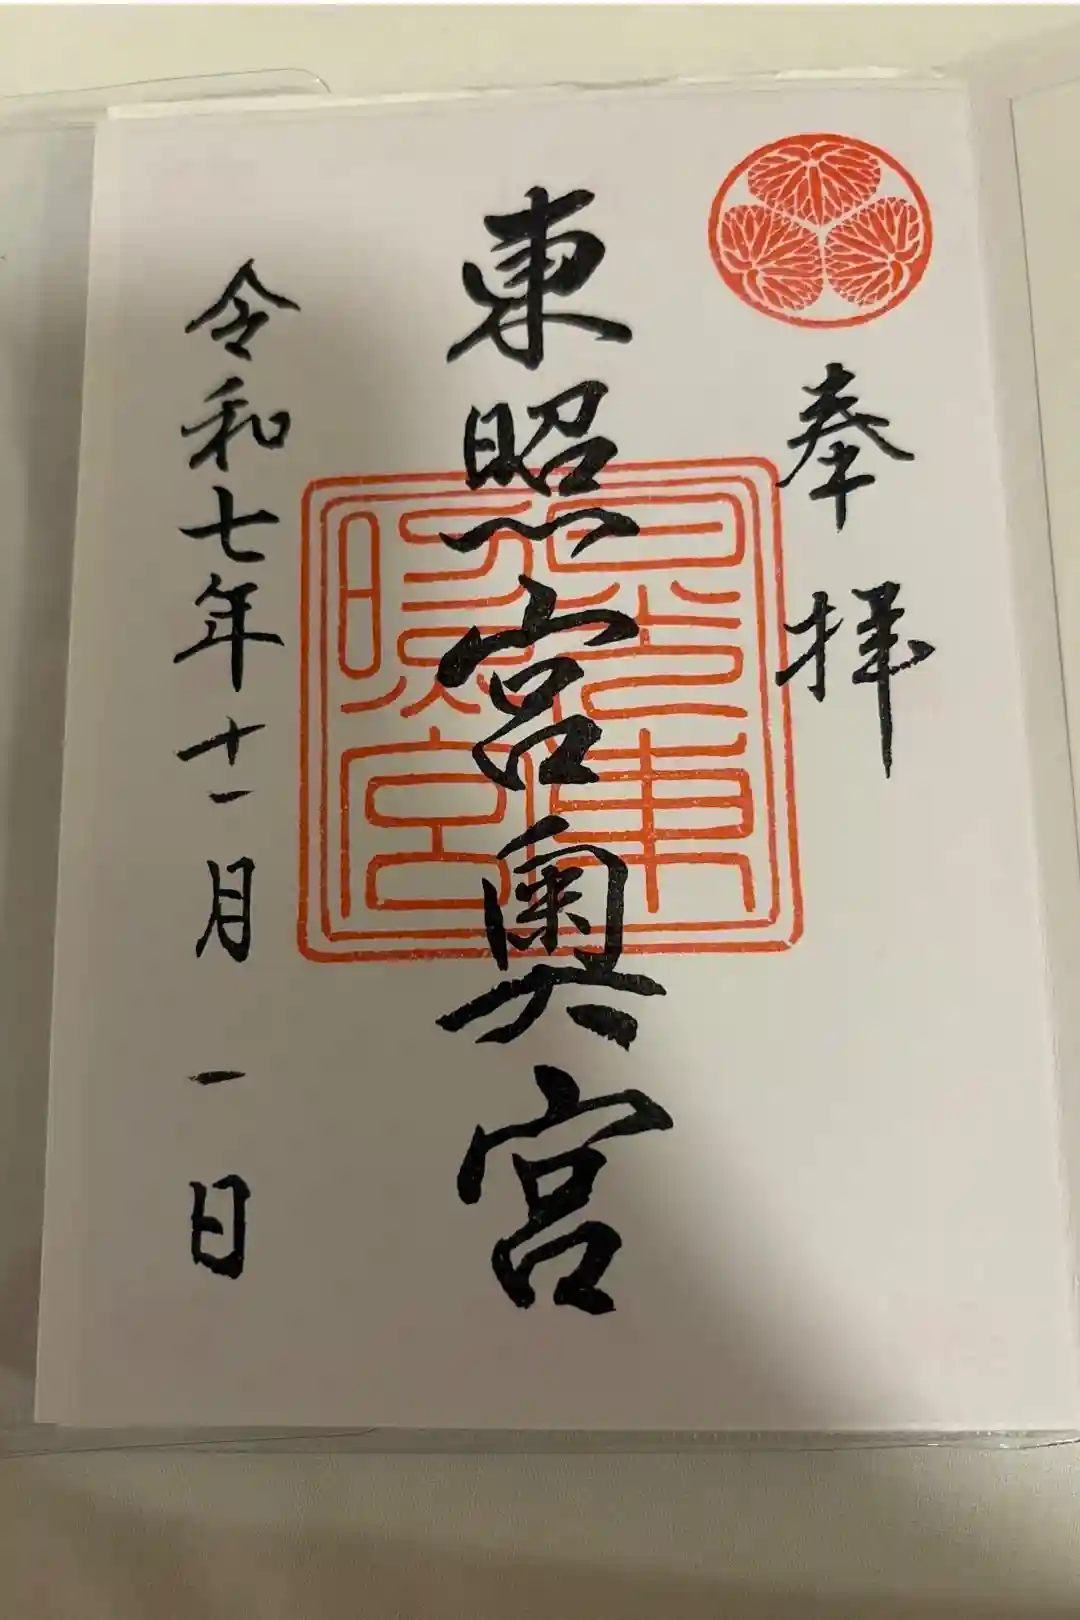 奉拝
東照宮奥宮
日光東照宮
令和七年十一月一日